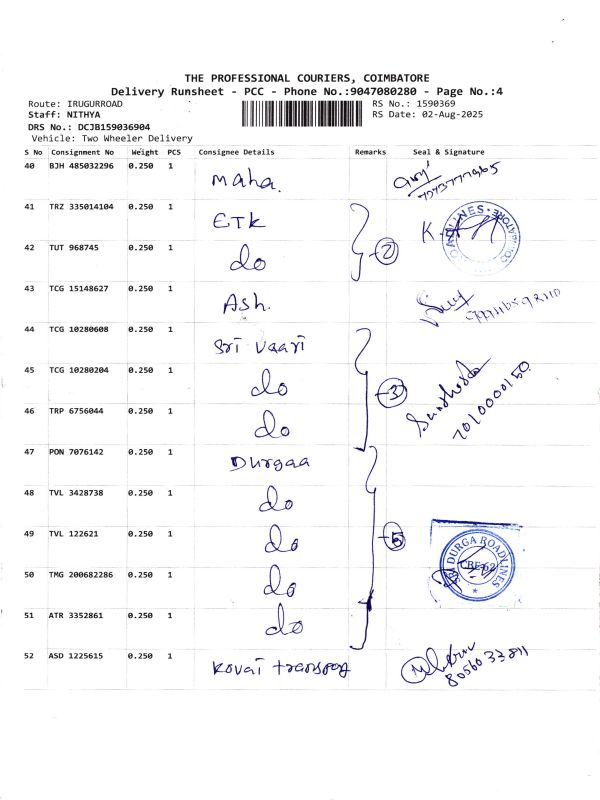 THE PROFESSIONAL COURIERS, COIMBATORE
Delivery Runsheet - PCC - Phone No.:9047080280 - Page No.:4
Route: IRUGURROAD RS No.: 1590369
Staff: NITHYA RS Date: 02-Aug-2025
DRS No.: DCJB159036904
Vehicle: Two Wheeler Delivery
S No Consignment No Weight PCS Consignee Details Remarks Seal & Signature
40 BJH 485032296 0.250 1 Maha.
41 TRZ 335014104 0.250 1 ETK K.
42 TUT 968745 0.250 1 do 2
43 TCG 15148627 0.250 1 Ash.
44 TCG 10280608 0.250 1 Sri Vaari
45 TCG 10280204 0.250 1 do 3
7010000150
46 TRP 6756044 0.250 1 do
47 PON 7076142 0.250 1 Durgaa
48 TVL 3428738 0.250 1 do
49 TVL 122621 0.250 1 do 5
SRI DURGA ROADLINES
CBE-62
50 TMG 200682286 0.250 1 do
51 ATR 3352861 0.250 1 do
52 ASD 1225615 0.250 1 Kovai transport
8056033811